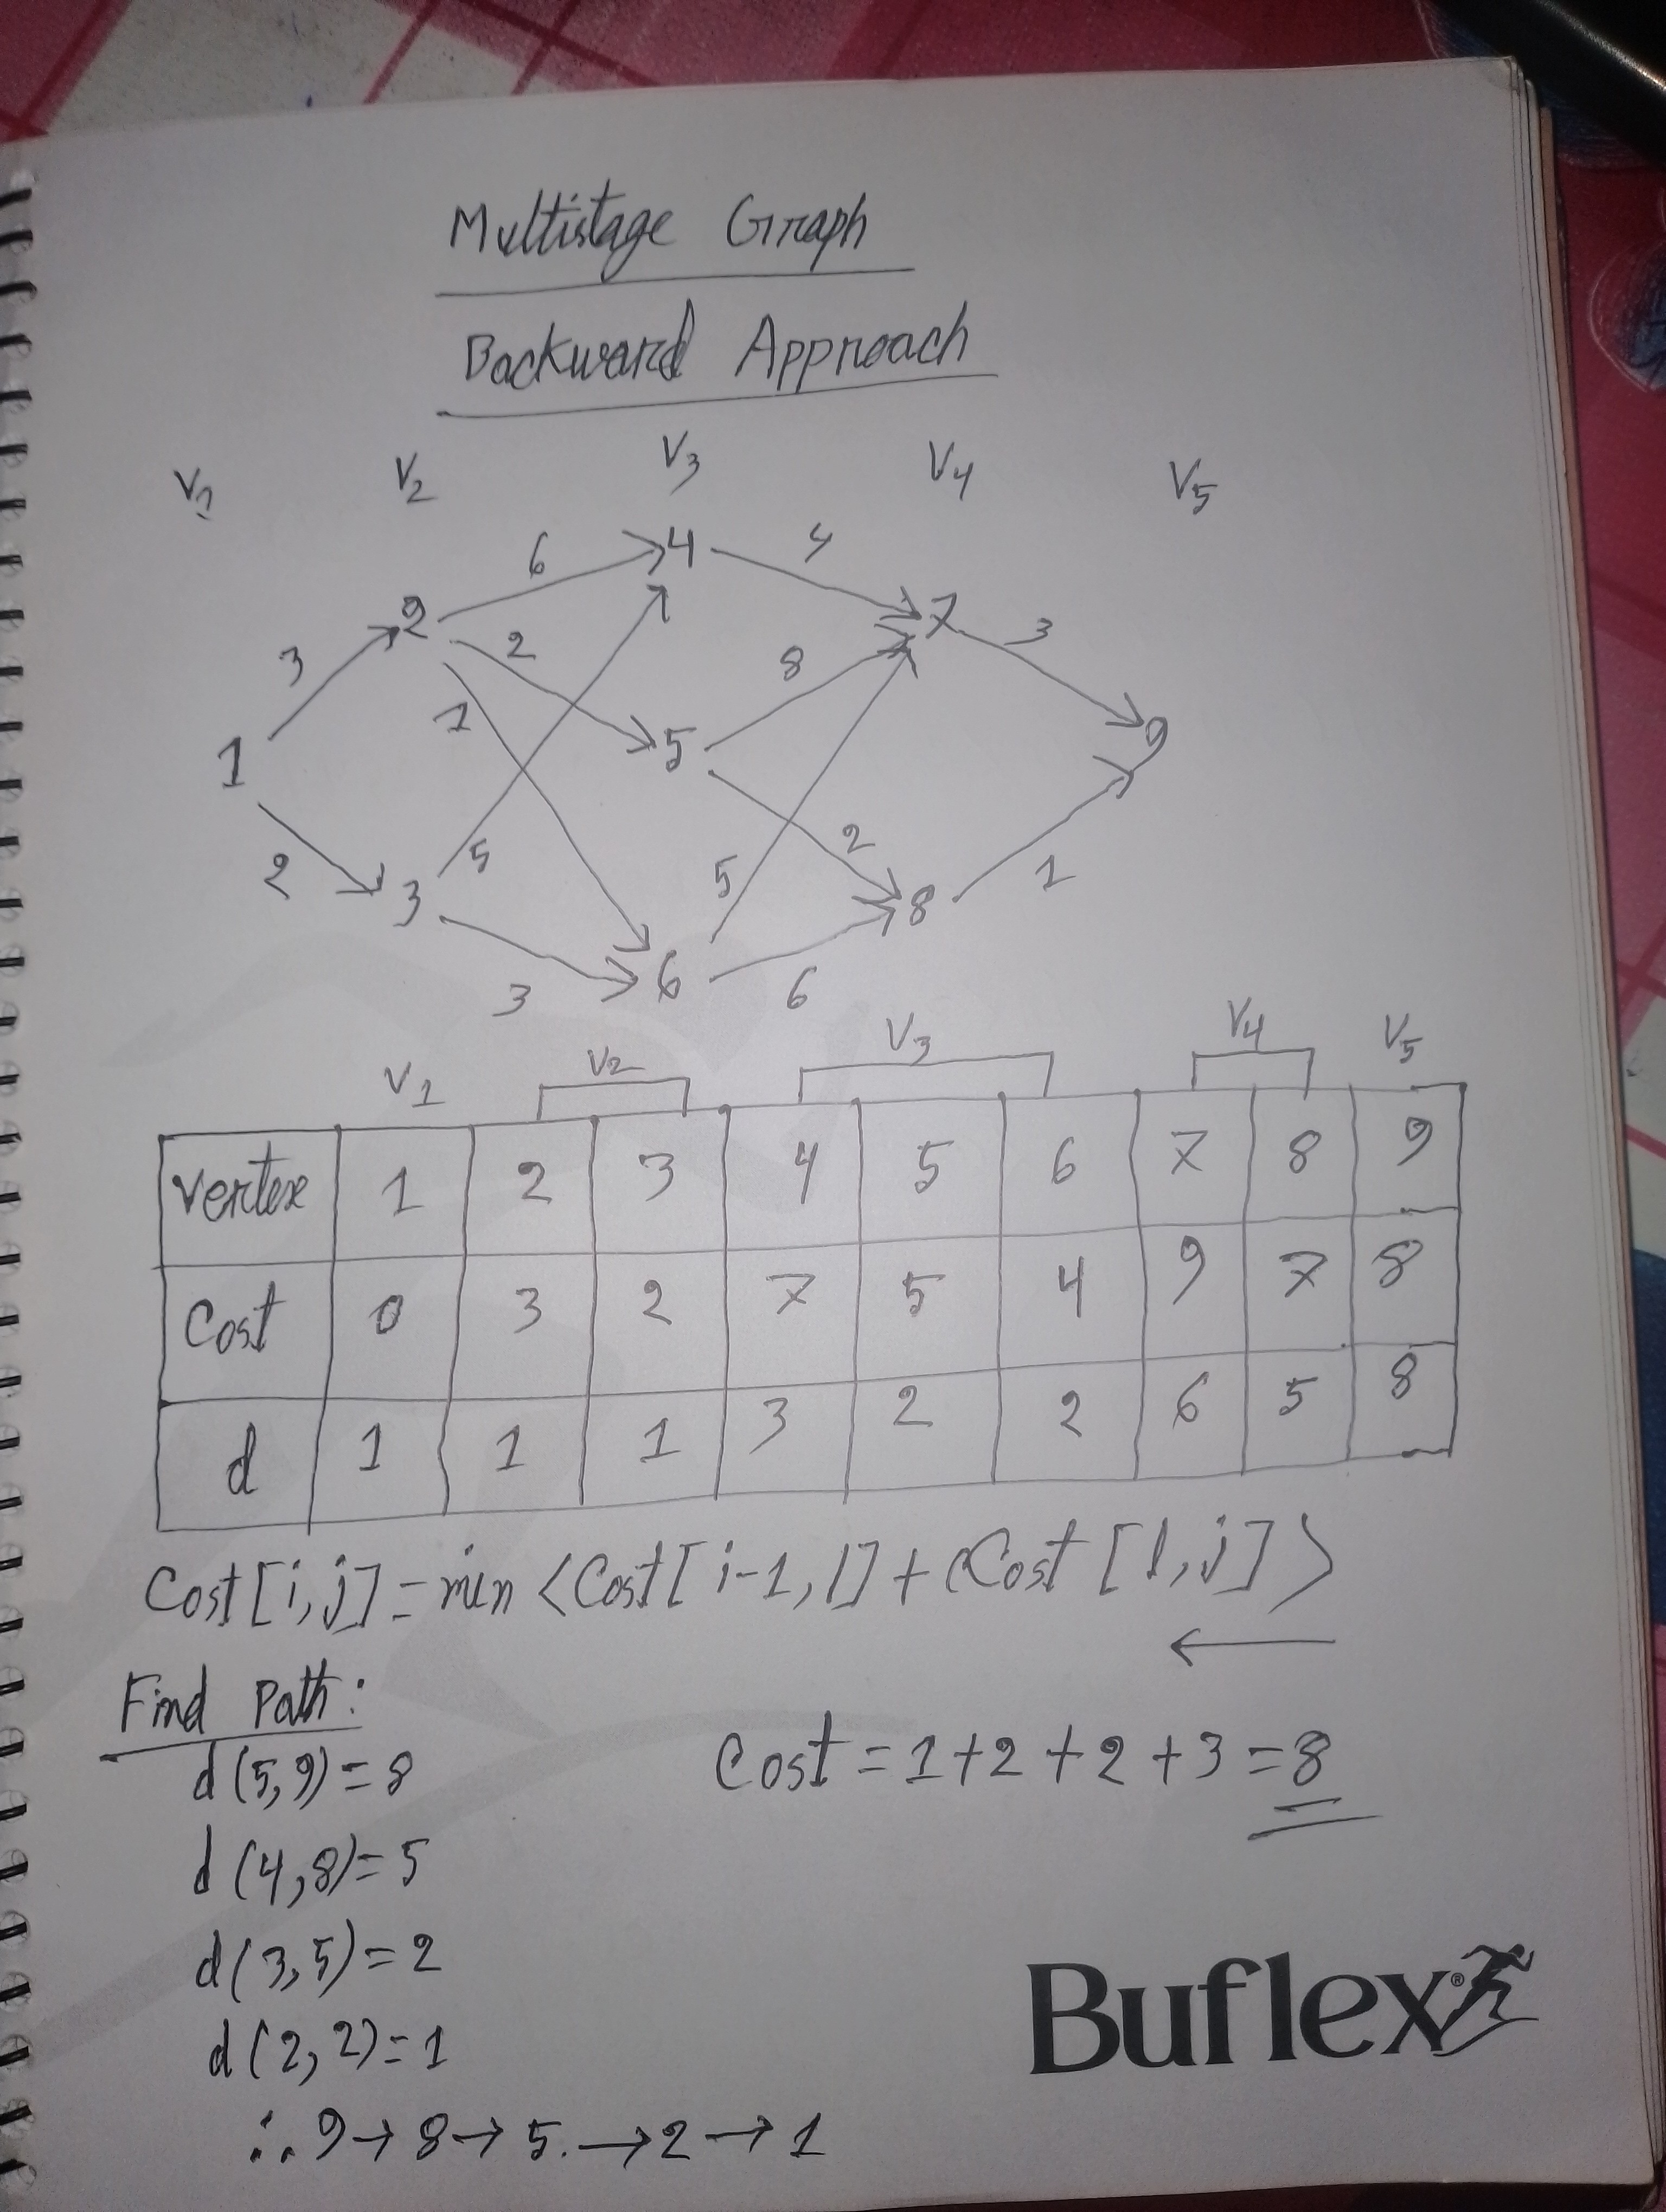 Multistage Graph
Backward Approach
V1 V2 V3 V4 V5
6 4 4
2 7
3 2 8 3
1 1 5 9
2 5 5 2 1
3 8
6
3 6
V1 V2 V3 V4 V5
Vertex 1 2 3 4 5 6 7 8 9
Cost 0 3 2 7 5 4 9 7 8
d 1 1 1 3 2 2 6 5 8
Cost[i,j]=min<Cost[i-1,l]+(Cost[l,j]>
←
Find Path:
d(5,9)=8
Cost=1+2+2+3=8
d(4,8)=5
d(3,5)=2
d(2,2)=1
∴ 9→8→5.→2→1
Buflex®